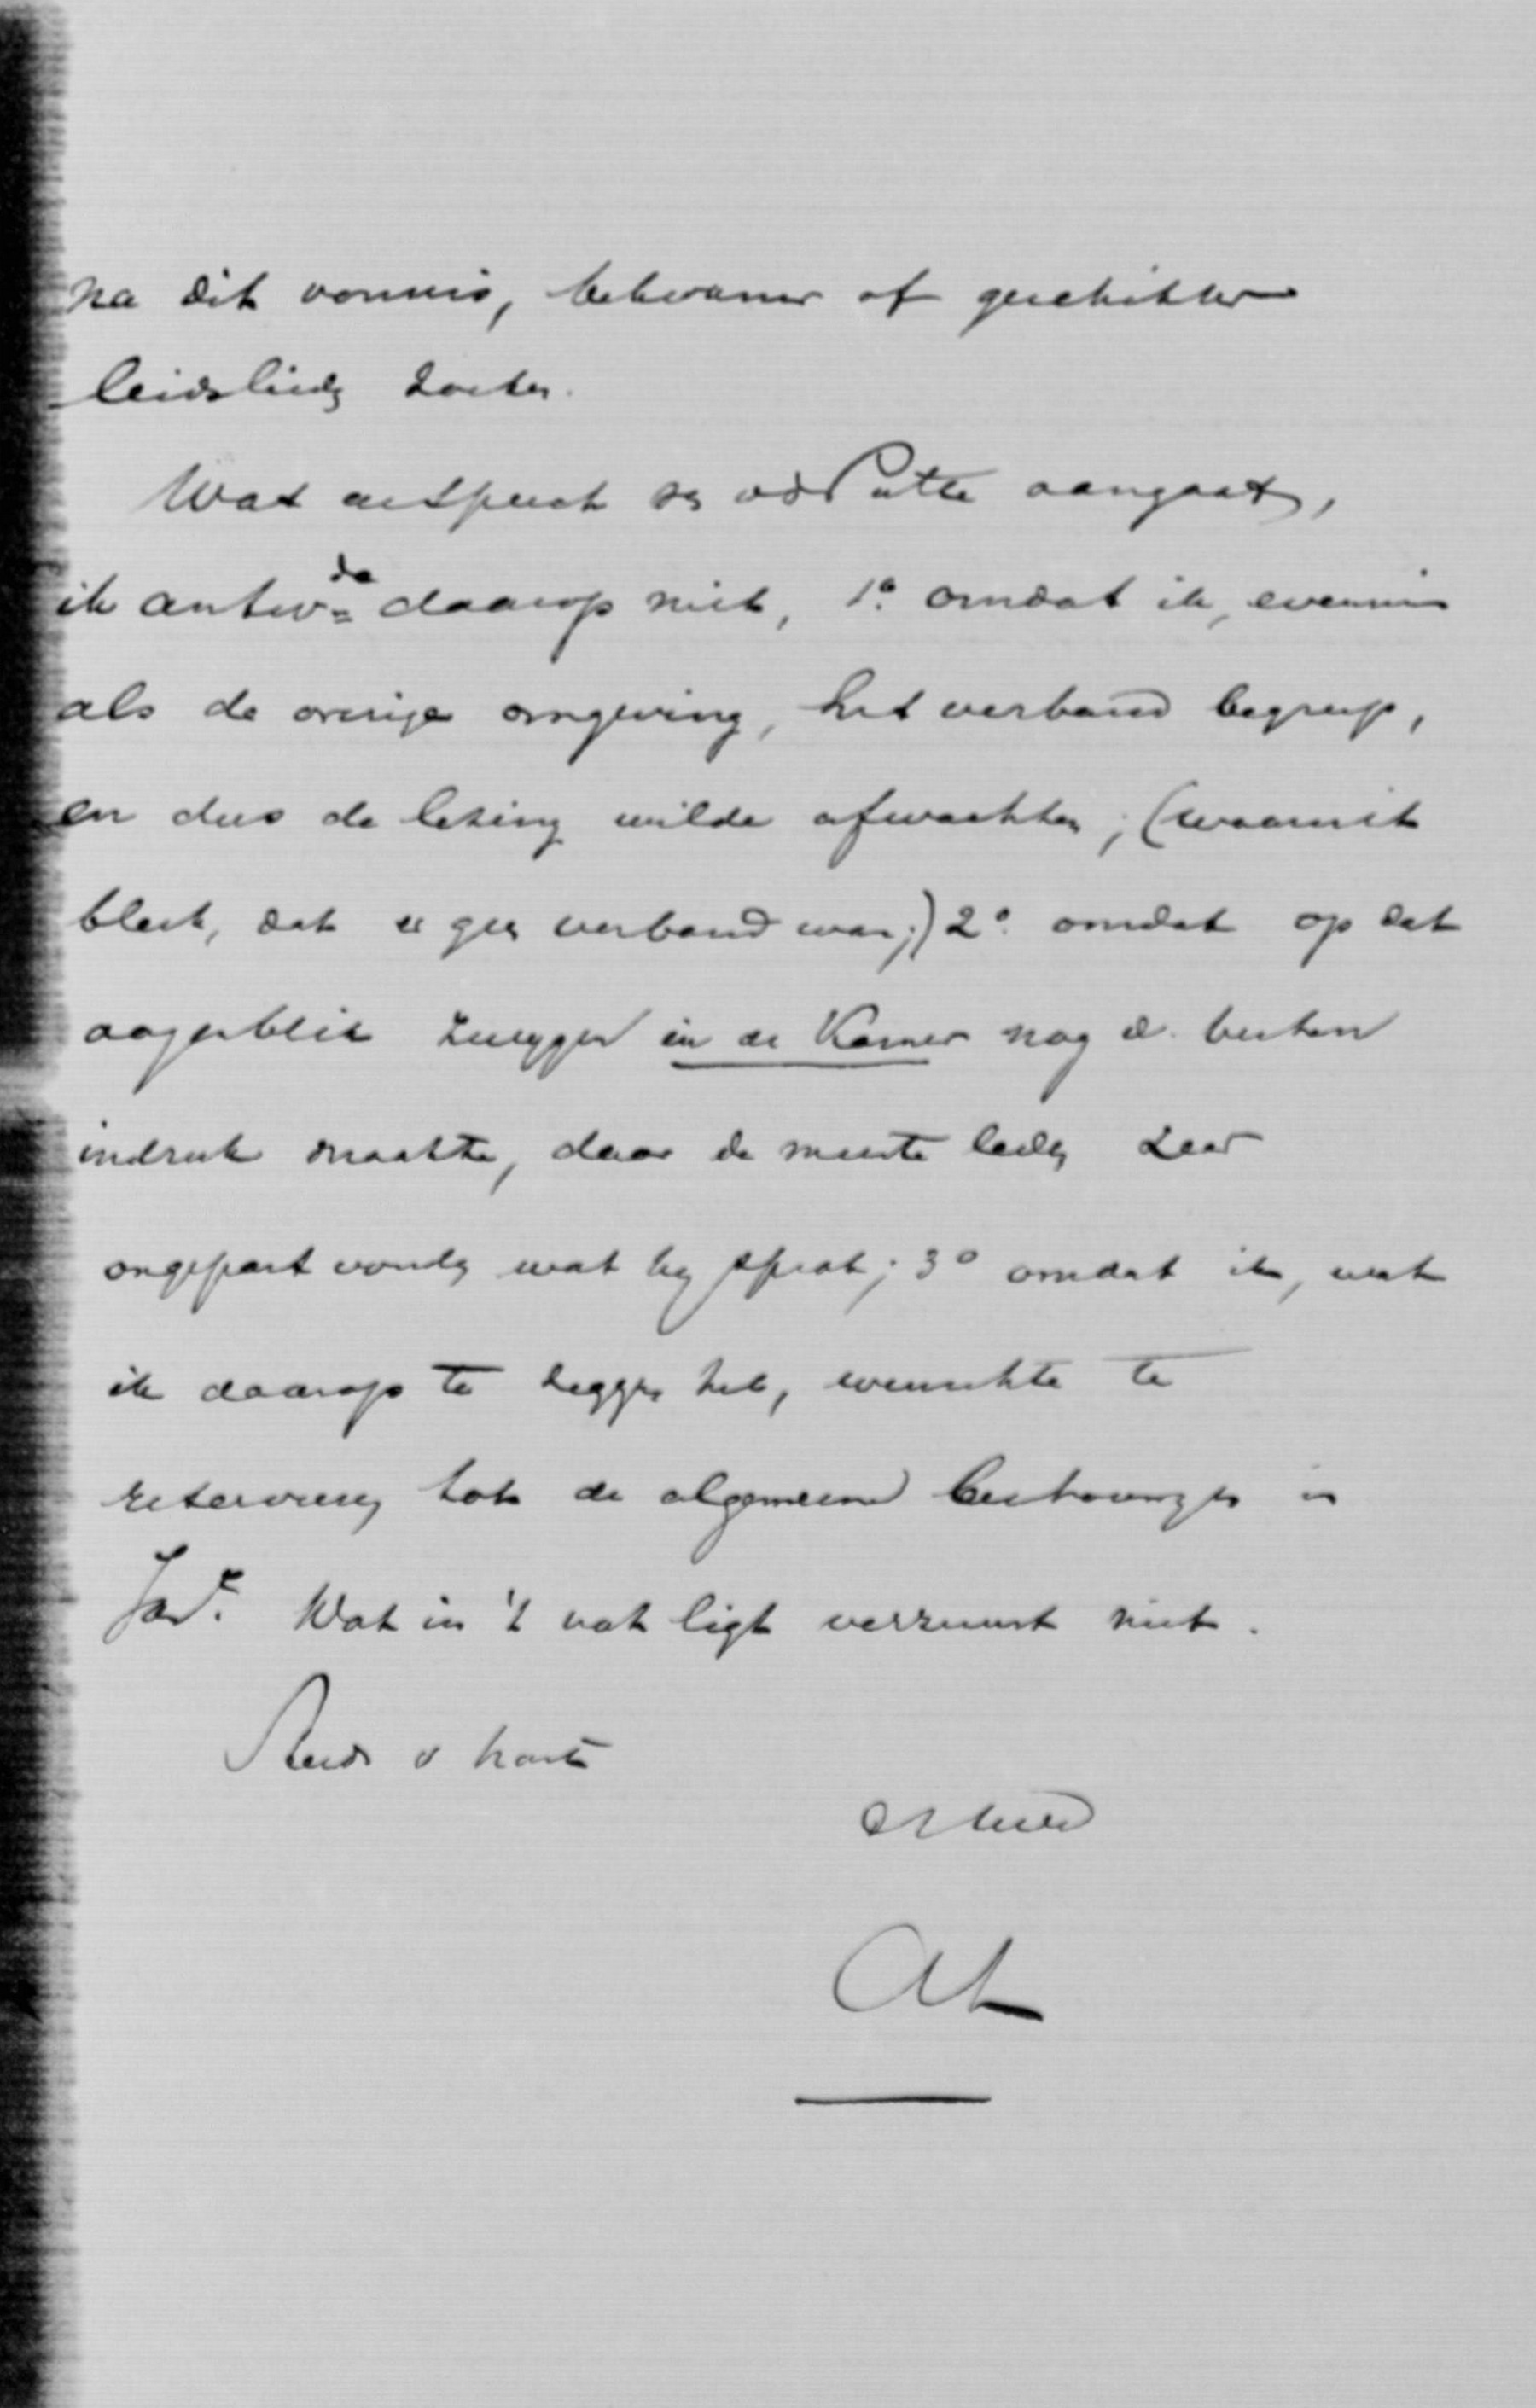 na dit vonnis, bekwamer of geschikter
leidslieden zoeken.
Wat betreft vd Putte aangaat,
ik antwde daarop niet, 1o. omdat ik, evenmin
als de overige omgeving, het verband begreep,
en dus de lezing wilde afwachten; (waaruit
bleek, dat er geen verband was;) 2o. omdat op dat
oogenblik zwijgen in de Kamer nog d. besten
indruk maakte, daar de meeste leden zeer
ongepast vonden wat hij sprak; 3o omdat ik, wat
ik daarop te zeggen heb, wenschte te
reserveren tot de algemeene beschouwingen in
Wat in 't vat ligt verzuurt niet.
Steeds v harte
AK